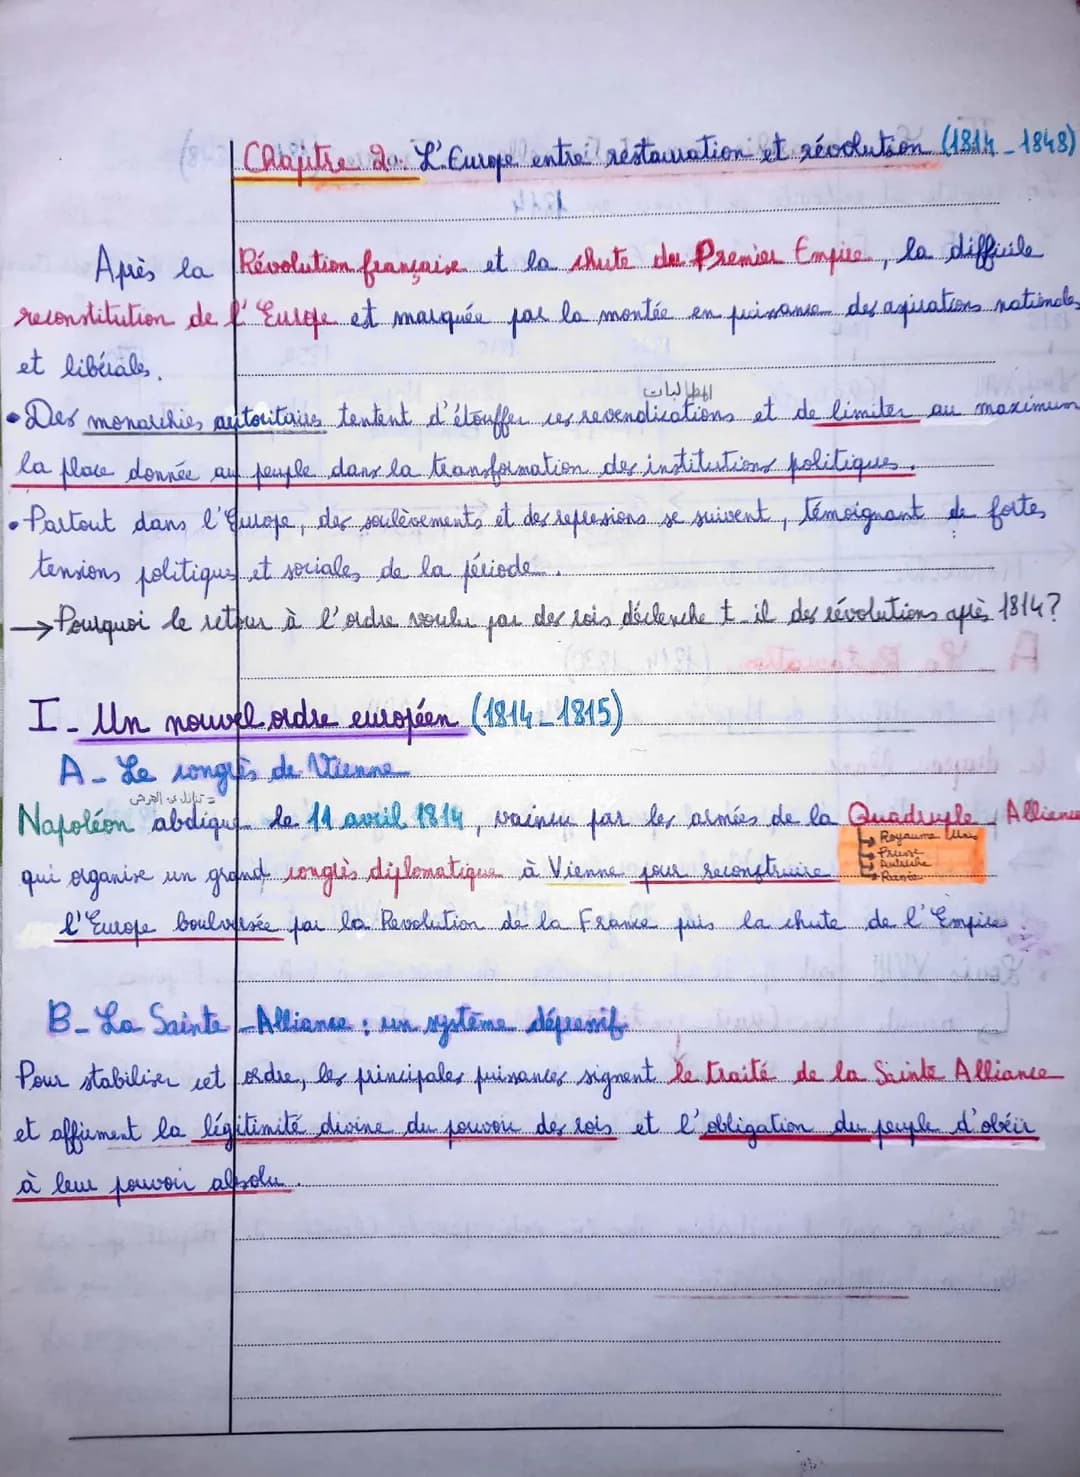 Chapitre 2: L'Europe entre restauration et révolution (1814_1848)
Après la Révolution française et la chute du Premier Empire, la difficile
reconstitution de l'Europe et marquée par la montée en puissance des aspirations nationales
et libérales.
المطالبات
• Des monarchies autoritaires tentent d'étouffer ces revendications et de limiter au maximum
la place donnée au peuple dans la transformation des institutions politiques.
• Partout dans l'Europe, des soulèvements et des repressions se suivent, témoignant de fortes
tensions politiques et sociales de la période.
→ Pourquoi le retour à l'ordre voulu par des rois déclenche t_il des révolutions après 1814?
I_ Un nouvel ordre européen (1814_1815)
A_ Le congrès de Vienne
= تنازل عن العرش
Napoléon abdique le 11 avril 1814, vaincu par les armées de la Quadruple Alliance
→ Royaume Uni
→ Prusse
→ Autriche
→ Russie
qui organise un grand congrès diplomatique à Vienne pour reconstruire
l'Europe bouleversée par la Revolution de la France puis la chute de l'Empire
B_ La Sainte_Alliance : un système dépressif
Pour stabiliser cet ordre, les principales puissances signent le traité de la Sainte Alliance
et affirment la légitimité divine du pouvoir des rois et l'obligation du peuple d'obéir
à leur pouvoir absolu.